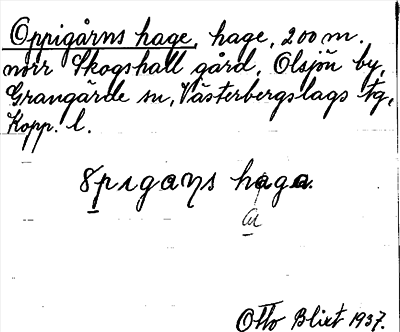 Oppigårns hage, hage, 200 m.
norr Skogshall gård, Olsjön by,
Grangärde sn, Västerbergslags tg,
Kopp. l.
8pıgaŋs haga.
Otto Blixt 1937.